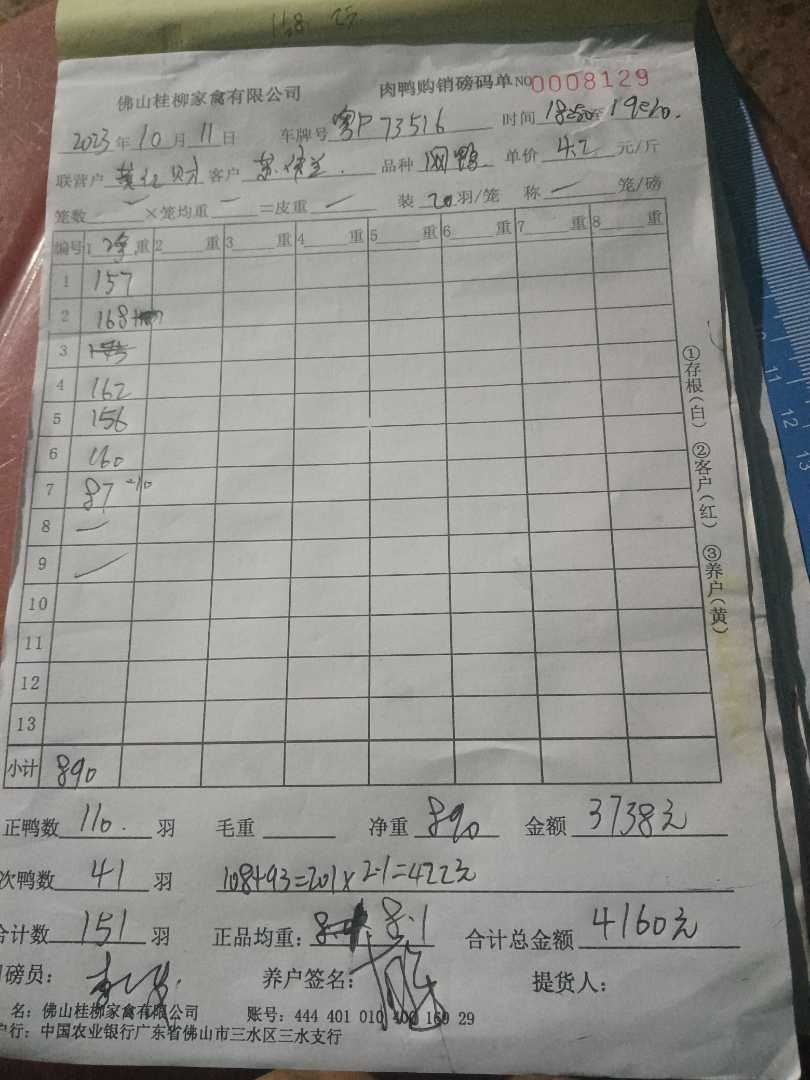 168
佛山桂柳家禽有限公司 肉鸭购销磅码单 NO0008129
2023年10月11日 车牌号 粤P73516 时间
联营户 财 客户 品种 鸭 单价 4.2 元/斤
笼数 — ×笼均重 — =皮重 — 装 20 羽/笼 称 — 笼/磅
编号 1 净重 2 重 3 重 4 重 5 重 6 重 7 重 8 重
1 157
2 168
3
4 162
5 156
6 160
7 87 -10
8 —
9 —
10
11
12
13
小计 890
正鸭数 110. 羽 毛重 净重 890 金额 3738元
次鸭数 41 羽 108+93=201×2.1=422元
合计数 151 羽 正品均重: 8.1 合计总金额 4160元
磅员: 养户签名: 提货人:
名: 佛山桂柳家禽有限公司 账号: 444 401 010 400 169 29
户行: 中国农业银行广东省佛山市三水区三水支行
①存根(白) ②客户(红) ③养户(黄)
11
12
13